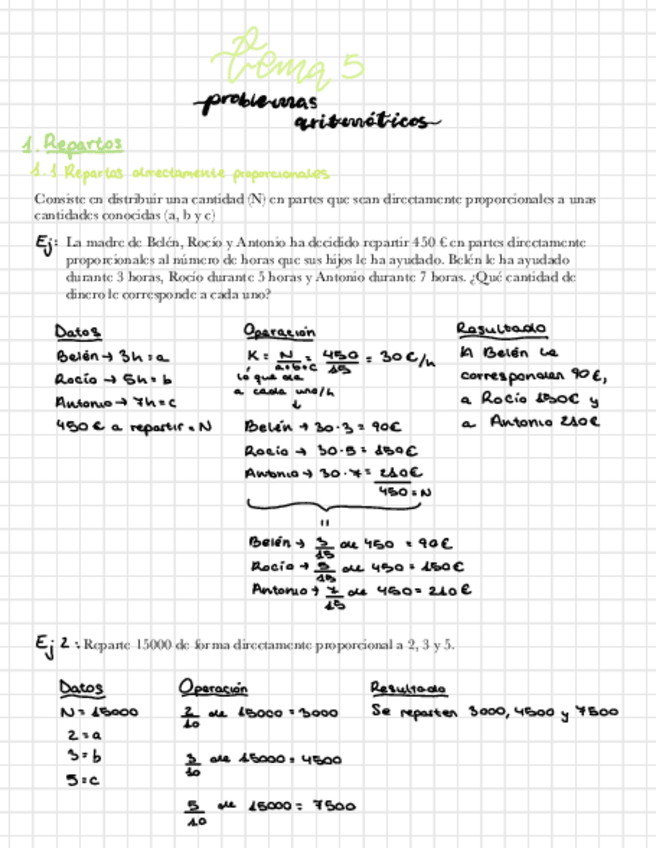 Tema 5
problemas
aritméticos
1. Repartos
1.1 Repartos directamente proporcionales
Consiste en distribuir una cantidad (N) en partes que sean directamente proporcionales a unas
cantidades conocidas (a, b y c)
Ej: La madre de Belén, Rocío y Antonio ha decidido repartir 450 € en partes directamente
proporcionales al número de horas que sus hijos le ha ayudado. Belén le ha ayudado
durante 3 horas, Rocío durante 5 horas y Antonio durante 7 horas. ¿Qué cantidad de
dinero le corresponde a cada uno?
Datos
Belén → 3h = a
Rocío → 5h = b
Antonio → 7h = c
450 € a repartir = N
Operación
K = N/a+b+c = 450/15 = 30€/h
lo que da
a cada uno/h
↓
Belén → 30·3 = 90€
Rocío → 30·5 = 150€
Antonio → 30·7 = 210€
450 = N
=
Belén → 3/15 de 450 = 90€
Rocío → 5/15 de 450 = 150€
Antonio → 7/15 de 450 = 210€
Resultado
A Belén le
corresponden 90€,
a Rocío 150€ y
a Antonio 210€
Ej 2: Reparte 15000 de forma directamente proporcional a 2, 3 y 5.
Datos
N = 15000
2 = a
3 = b
5 = c
Operación
2/10 de 15000 = 3000
3/10 de 15000 = 4500
5/10 de 15000 = 7500
Resultado
Se reparten 3000, 4500 y 7500